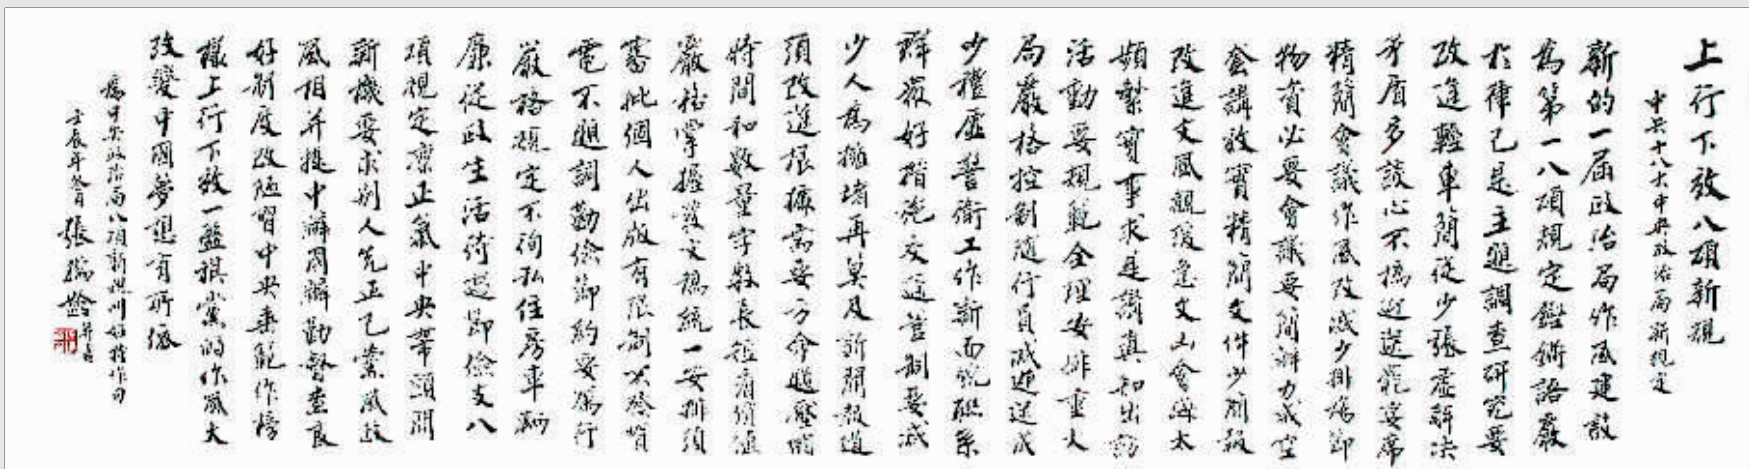 上行下效八項新規
中共十八大中央政治局新規定
新的一屆政治局作風建設
為第一八項規定鏗鏘語嚴
於律己是主題調查研究要
改進輕車簡從少張虛解決
矛盾多談心不搞迎送寵宴席
精簡會議作風改減少排場節
物資必要會議要簡辦力戒空
套講效實精簡文件少簡報
改進文風親後急文山會海太
頻繁實事求是講真知出訪
活動要規範合理安排重大
局嚴格控制隨行員減迎送戒
少禮虛警衛工作新面貌聯系
群眾好措施交通管制要減
少人為擁堵再莫及新聞報道
須改進根據需要方會題壓縮
時間和數量字數長短有須值
嚴格掌握發文稿統一安排須
審批個人出版有限制不發賀
電不題詞勤儉節約要為行
嚴格規定不徇私住房車輛
廉從政生活待遇節儉支八
項規定凜正氣中央帶頭開
新機要求別人先正己黨風政
風相并提中辦國辦勤督查良
好制度改陋習中央垂範作榜
樣上行下效一盤棋黨的作風大
改變中國夢想有所依
為中央政治局八項新規叫好撰作句
壬辰年冬月張 齡并書